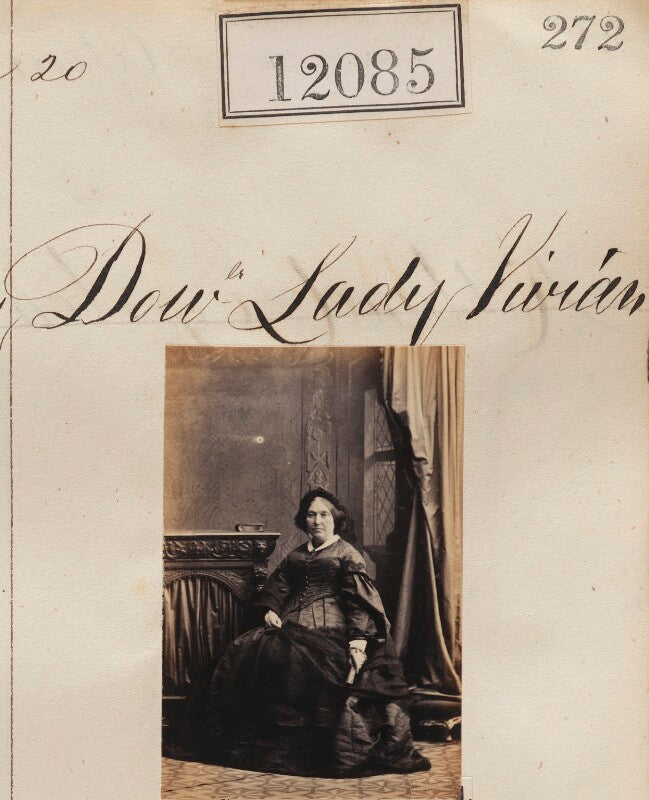 272
12085
20
Dowr Lady Vivian